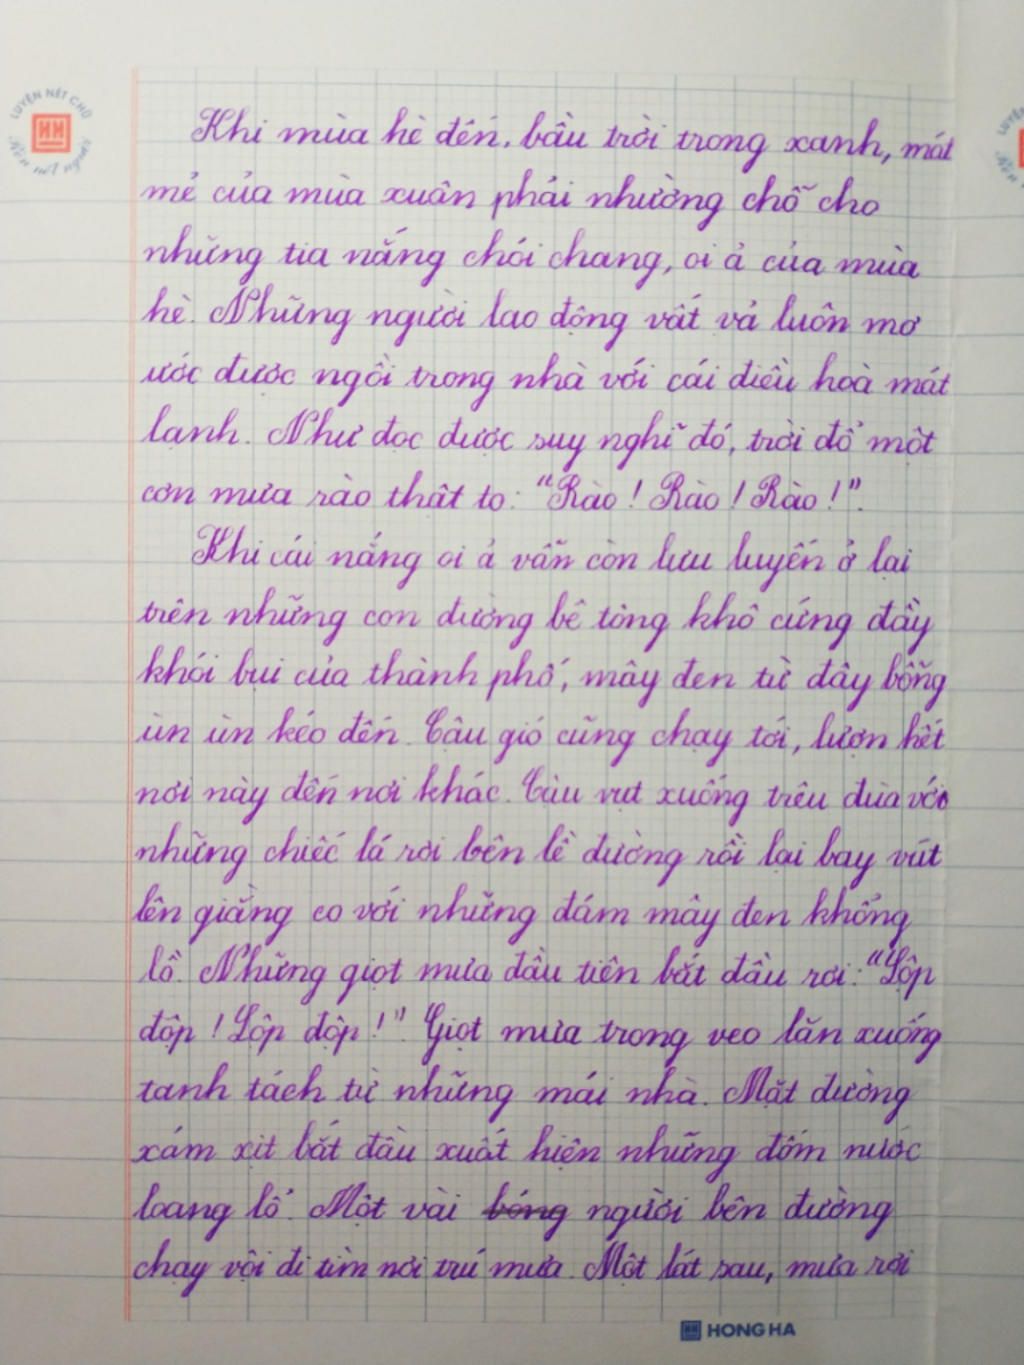 LUYỆN NÉT CHỮ
Rèn nết người
Khi mùa hè đến, bầu trời trong xanh, mát
mẻ của mùa xuân phải nhường chỗ cho
những tia nắng chói chang, oi ả của mùa
hè. Những người lao động vất vả luôn mơ
ước được ngồi trong nhà với cái điều hoà mát
lạnh. Như đọc được suy nghĩ đó, trời đổ một
cơn mưa rào thật to: "Rào! Rào! Rào!".
Khi cái nắng oi ả vẫn còn lưu luyến ở lại
trên những con đường bê tông khô cứng đầy
khói bụi của thành phố, mây đen từ đâu bỗng
ùn ùn kéo đến. Cậu gió cũng chạy tới, lượn hết
nơi này đến nơi khác. Cậu vụt xuống trêu đùa với
những chiếc lá rơi bên lề đường rồi lại bay vút
lên giằng co với những đám mây đen khổng
lồ. Những giọt mưa đầu tiên bắt đầu rơi: "Lộp
độp! Lộp độp!". Giọt mưa trong veo lăn xuống
tanh tách từ những mái nhà. Mặt đường
xám xịt bắt đầu xuất hiện những đốm nước
loang lổ. Một vài bóng người bên đường
chạy vội đi tìm nơi trú mưa. Một lát sau, mưa rơi
HONG HA